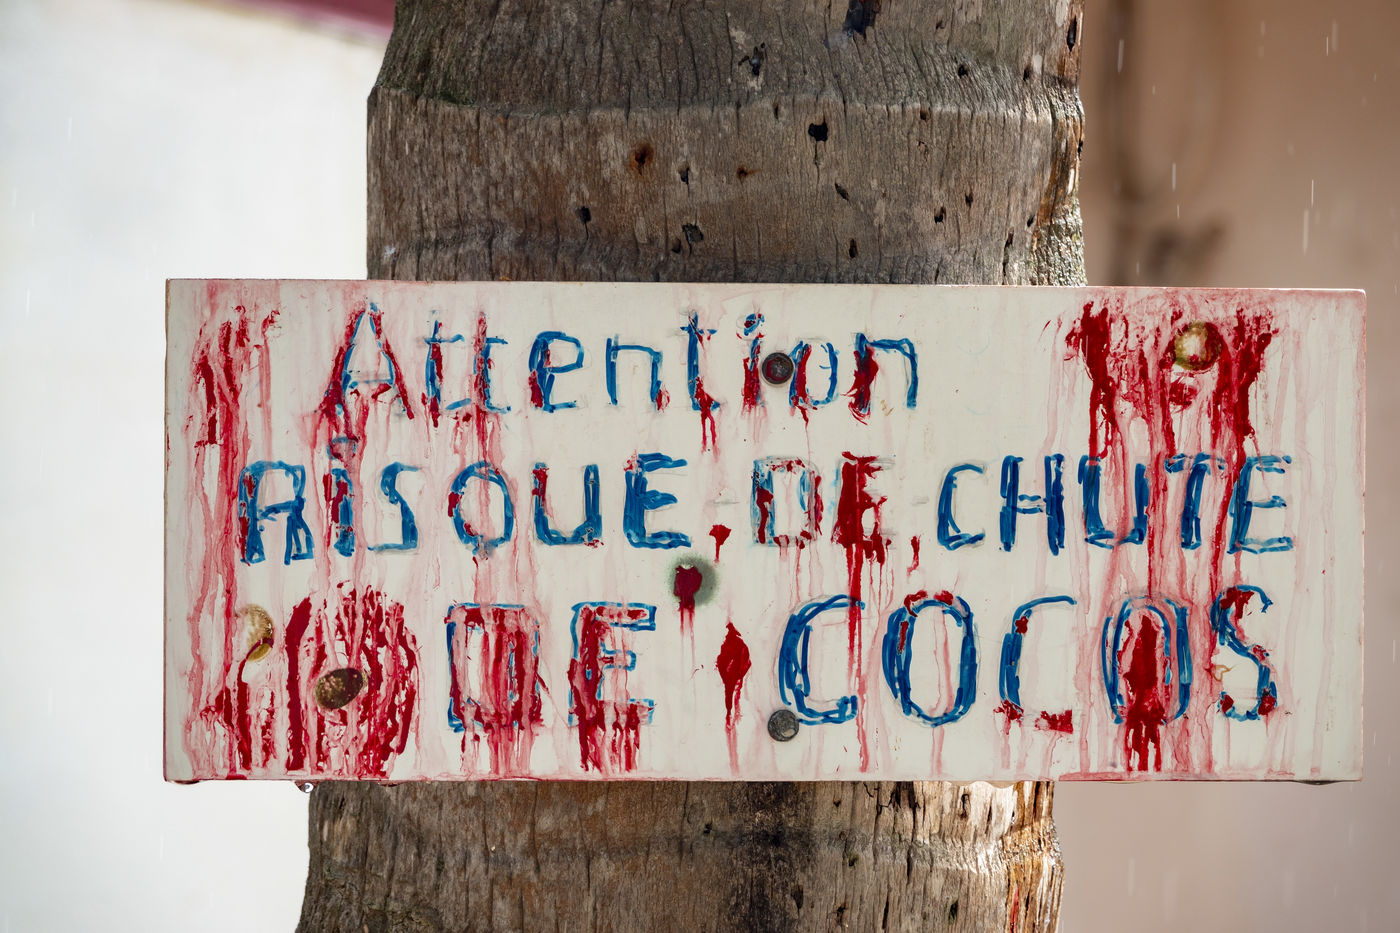 Attention
RiSQUE.DE.CHUTE
DE.COCOS